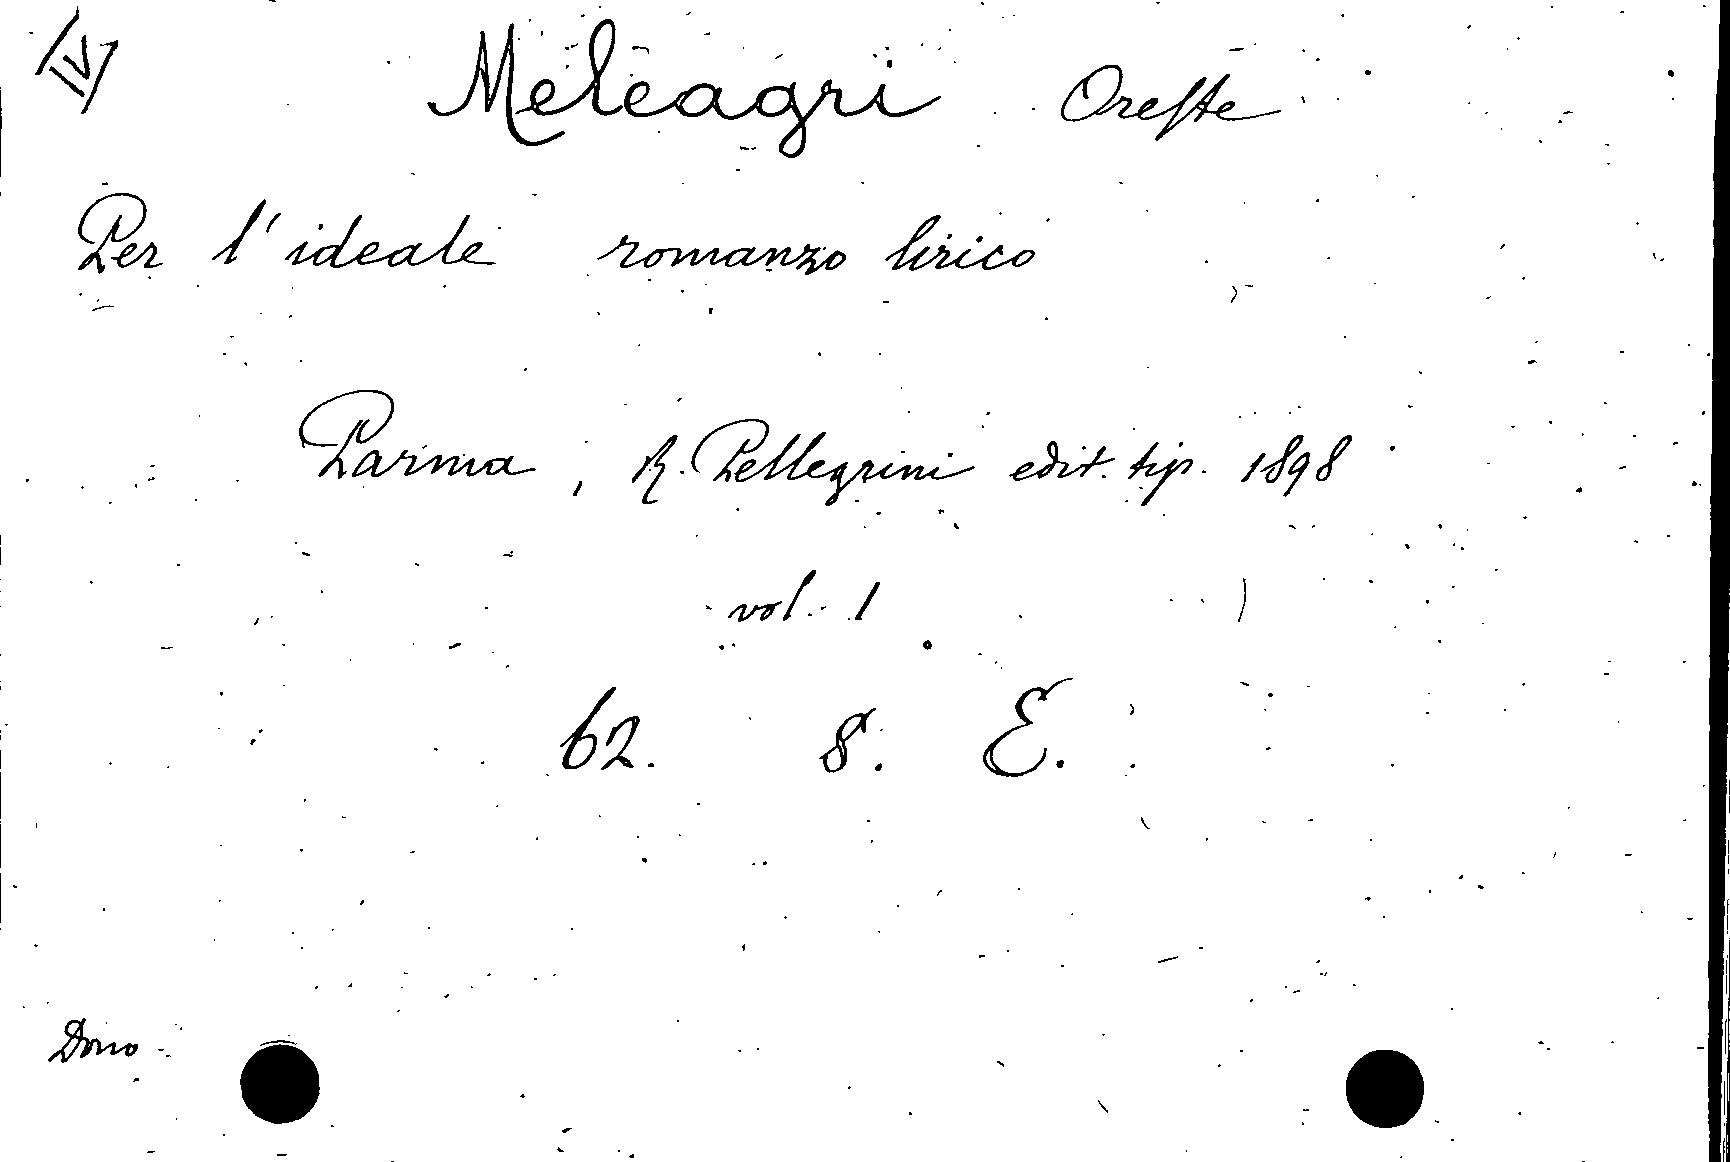 IV
Meleagri Oreste
Per l'ideale romanzo lirico
Parma, R. Pellegrini edit. tip. 1898
vol. 1
62. 8. E.
Dono